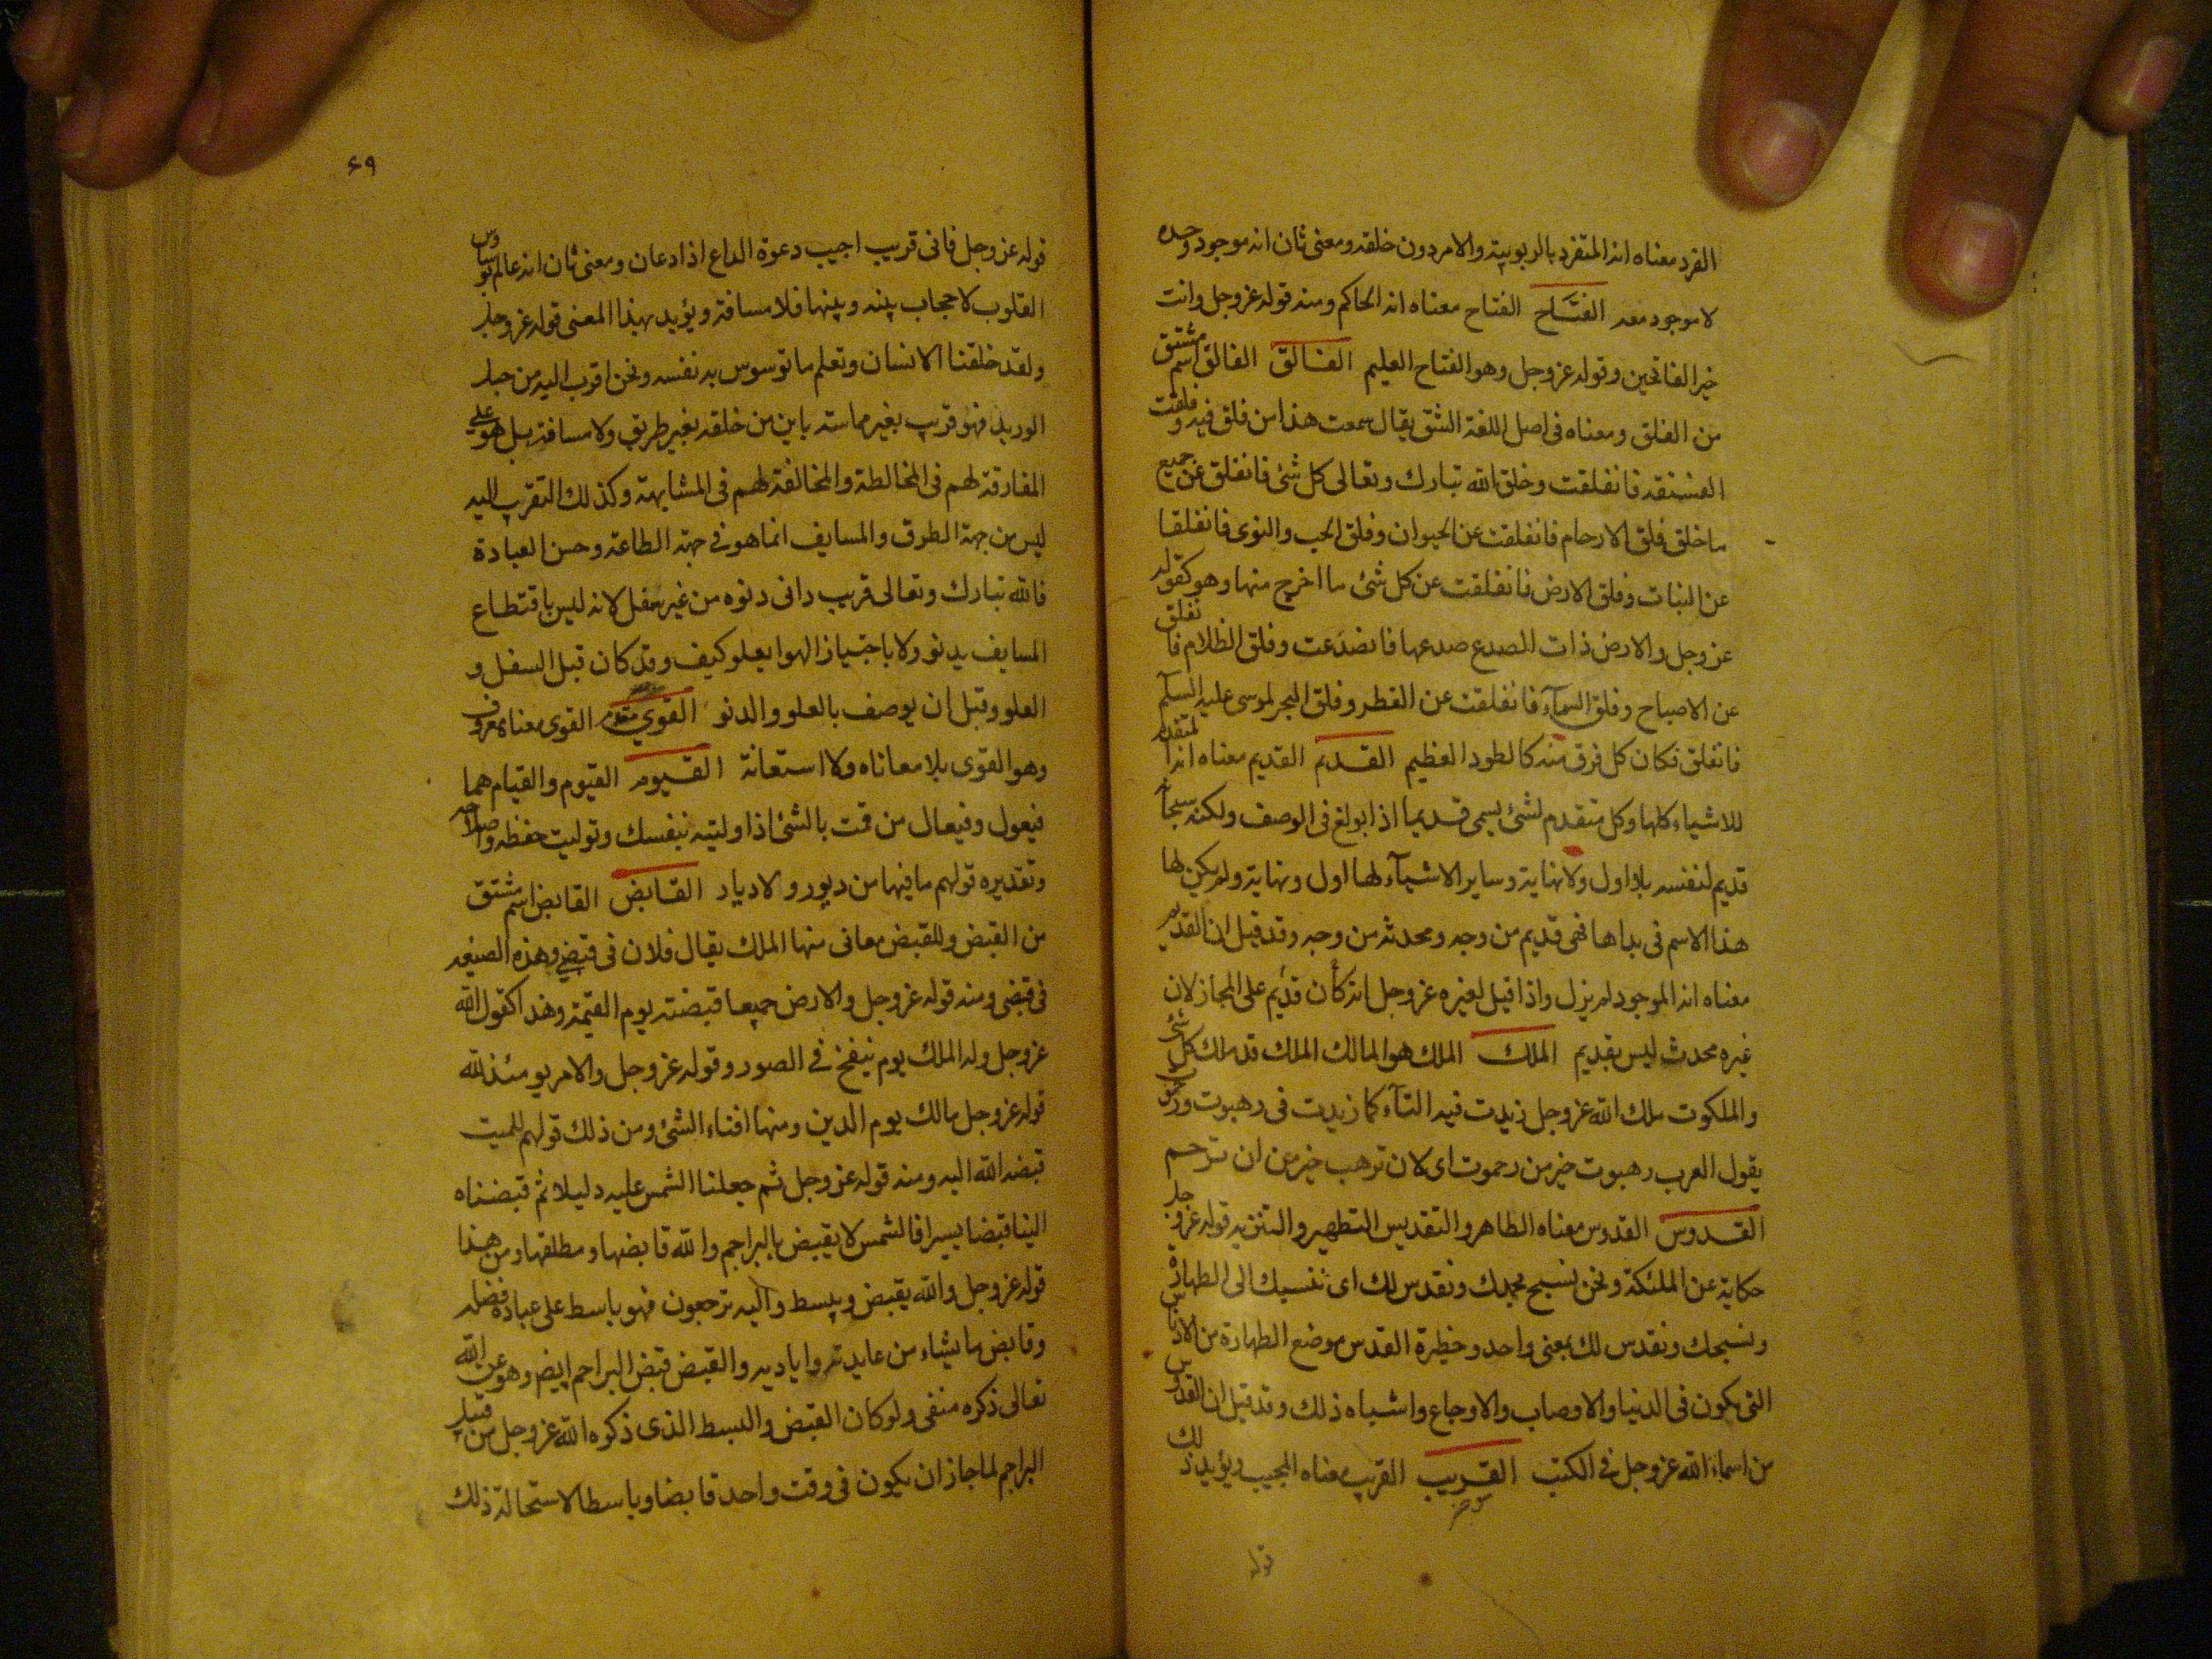 الفرد معناه انه المتفرد بالربوبية والامر دون خلقه ومعنى ثان انه موجود وحده
لا موجود معه الفتاح الفتاح معناه انه الحاكم ومنه قوله عز وجل وانت
خير الفاتحين وقوله عز وجل وهو الفتاح العليم الفالق الفالق اسم مشتق
من الفلق ومعناه فى اصل اللغة الشق يقال سمعت هذا من فلق فيه وفلقت
الفستقة فانفلقت وخلق الله تبارك وتعالى كل شئ فانفلق عن جميع
ما خلق فلق الارحام فانفلقت عن الحيوان وفلق الحب والنوى فانفلقا
عن النبات وفلق الارض فانفلقت عن كل شئ ما اخرج منها وهو كقوله
عز وجل والارض ذات الصدع صدعها فانصدعت وفلق الظلام فانفلق
عن الاصباح وفلق السمآء فانفلقت عن القطر وفلق البحر لموسى عليه السلام
فانفلق فكان كل فرق منه كالطود العظيم القديم القديم معناه انه المتقدم
للاشياء كلها وكل متقدم لشئ يسمى قديما اذا بولغ فى الوصف ولكنه سبحانه
قديم لنفسه بلا اول ولا نهاية وساير الاشيآء لها اول ونهاية ولم يكن لها
هذا الاسم فى بداها فهى قديم من وجه ومحدثه من وجه وقد قيل ان القديم
معناه انه الموجود لم يزل واذا قيل لغيره عز وجل انه كان قديم على المجاز لان
غيره محدث ليس بقديم الملك الملك هو المالك الملك قد ملك كل شئ
والملكوت ملك الله عز وجل زيدت فيه التآء كما زيدت فى رهبوت ورحموت
يقول العرب رهبوت خير من رحموت اى لان ترهب خير من ان ترحم
القدوس القدوس معناه الطاهر والتقديس التطهير والتنزيه قوله عز وجل
حكاية عن الملئكة ونحن نسبح بحمدك ونقدس لك اى ننسبك الى الطهارة
ونسبحك ونقدس لك بمعنى واحد وحظيرة القدس موضع الطهارة من الادناس
التى يكون فى الدنيا والاوصاب والاوجاع واشباه ذلك وقد قيل ان القدوس
من اسماء الله عز وجل فى الكتب القريب القريب معناه المجيب ويؤيد ذلك
قوله
۶۹
قوله عز وجل فانى قريب اجيب دعوة الداع اذا دعان ومعنى ثان انه عالم بوساوس
القلوب لا حجاب بينه وبينها فلا مسافة ويؤيد بهذا المعنى قوله عز وجل
ولقد خلقنا الانسان ونعلم ما توسوس به نفسه ونحن اقرب اليه من حبل
الوريد فهو قريب بغير مماسة باين من خلقه بغير طريق ولا مسافة بل هو على
المفارقة لهم فى المخالطة والمخالفة لهم فى المشابهة وكذلك التقرب اليه
ليس من جهة الطرق والمسايف انما هو فى جهة الطاعة وحسن العبادة
فالله تبارك وتعالى قريب دانى دنوه من غير سفل لانه ليس باقتطاع
المسايف يدنو ولا باجتياز الهوا يعلو كيف وقد كان قبل السفل و
العلو وقبل ان يوصف بالعلو والدنو القوى القوى معناه معروف
وهو القوى بلا معاناه ولا استعانة القيوم القيوم والقيام هما
فيعول وفيعال من قمت بالشئ اذا وليته بنفسك وتوليت حفظه واصلاحه
وتقديره قولهم ما فيها من ديور ولا ديار القابض القابض اسم مشتق
من القبض وللقبض معانى منها الملك يقال فلان فى قبضى وهذه الضيعه
فى قبضى ومنه قوله عز وجل والارض جميعا قبضته يوم القيمة وهذا كقول الله
عز وجل وله الملك يوم ينفخ فى الصور وقوله عز وجل والامر يومئذ لله
قوله عز وجل مالك يوم الدين ومنها افناء الشئ ومن ذلك قولهم للميت
قبضه الله اليه ومنه قوله عز وجل ثم جعلنا الشمس عليه دليلا ثم قبضناه
الينا قبضا يسيرا فالشمس لا يقبض بالبراجم والله قابضها ومطلقها ومن هذا
قوله عز وجل والله يقبض ويبسط واليه ترجعون فهو باسط على عباده فضله
وقابض ما يشاء من عايدته واياديه والقبض قبض البراجم ايضا وهو عن الله
تعالى ذكره منفى ولو كان القبض والبسط الذى ذكره الله عز وجل من قبل
البراجم لما جاز ان يكون فى وقت واحد قابضا وباسطا لاستحالة ذلك